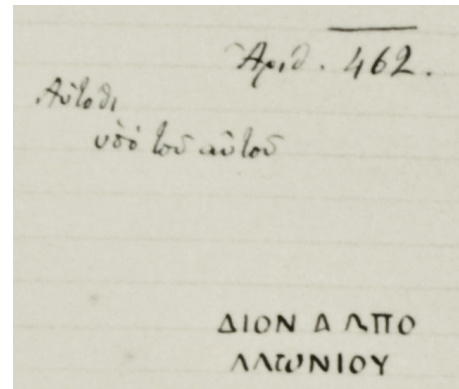 Ἀριθ. 462.
Αὐτόθι
ὑπὸ τοῦ αὐτοῦ
ΔΙΟΝ Δ ΛΠΟ
ΛΛΩΝΙΟΥ